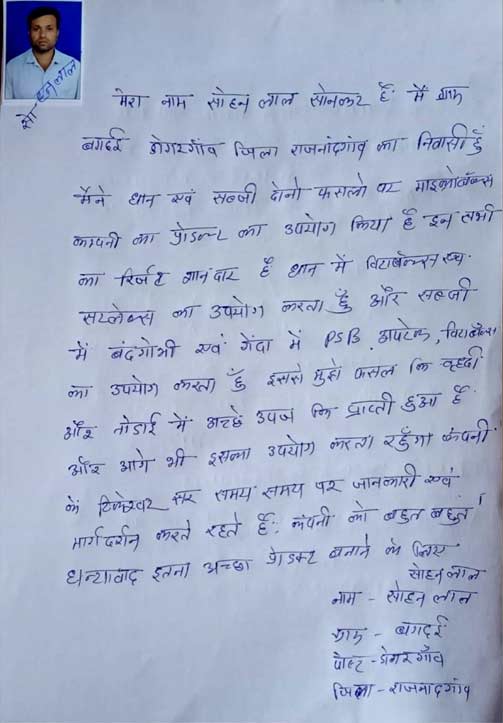 सोहन लाल
मेरा नाम सोहन लाल सोनकर है: मैं ग्राम
बगदई डोंगरगॉंव जिला राजनांदगॉंव का निवासी हुँ
मैंने धान एवं सब्जी दोनो फसलो पर माइक्रोबॅक्स
कम्पनी का प्रोडक्ट का उपयोग किया है इन सभी
का रिजल्ट शानदार है धान में विटाबॅक्स
का उपयोग करता हुँ और सब्जी
में बंदगोभी एवं गेंदा में PSB, अपटेक, विटाबॅक्स
का उपयोग करता हुँ इससे मुझे फसल कि वृद्दी
और तोडाई में अच्छे उपज कि प्राप्ती हुआ है:
और आगे भी इसका उपयोग करता रहुँगा कंपनी
के टिकेश्वर सर समय समय पर जानकारी एवं
मार्गदर्शन करते रहते है: कंपनी को बहुत बहुत।
धन्यावाद इतना अच्छा प्रोडक्ट बनाने के लिए
सोहन लाल
नाम - सोहन लाल
ग्राम - बगदई
पोस्ट - डोंगरगॉंव
जिला - राजनादगांव